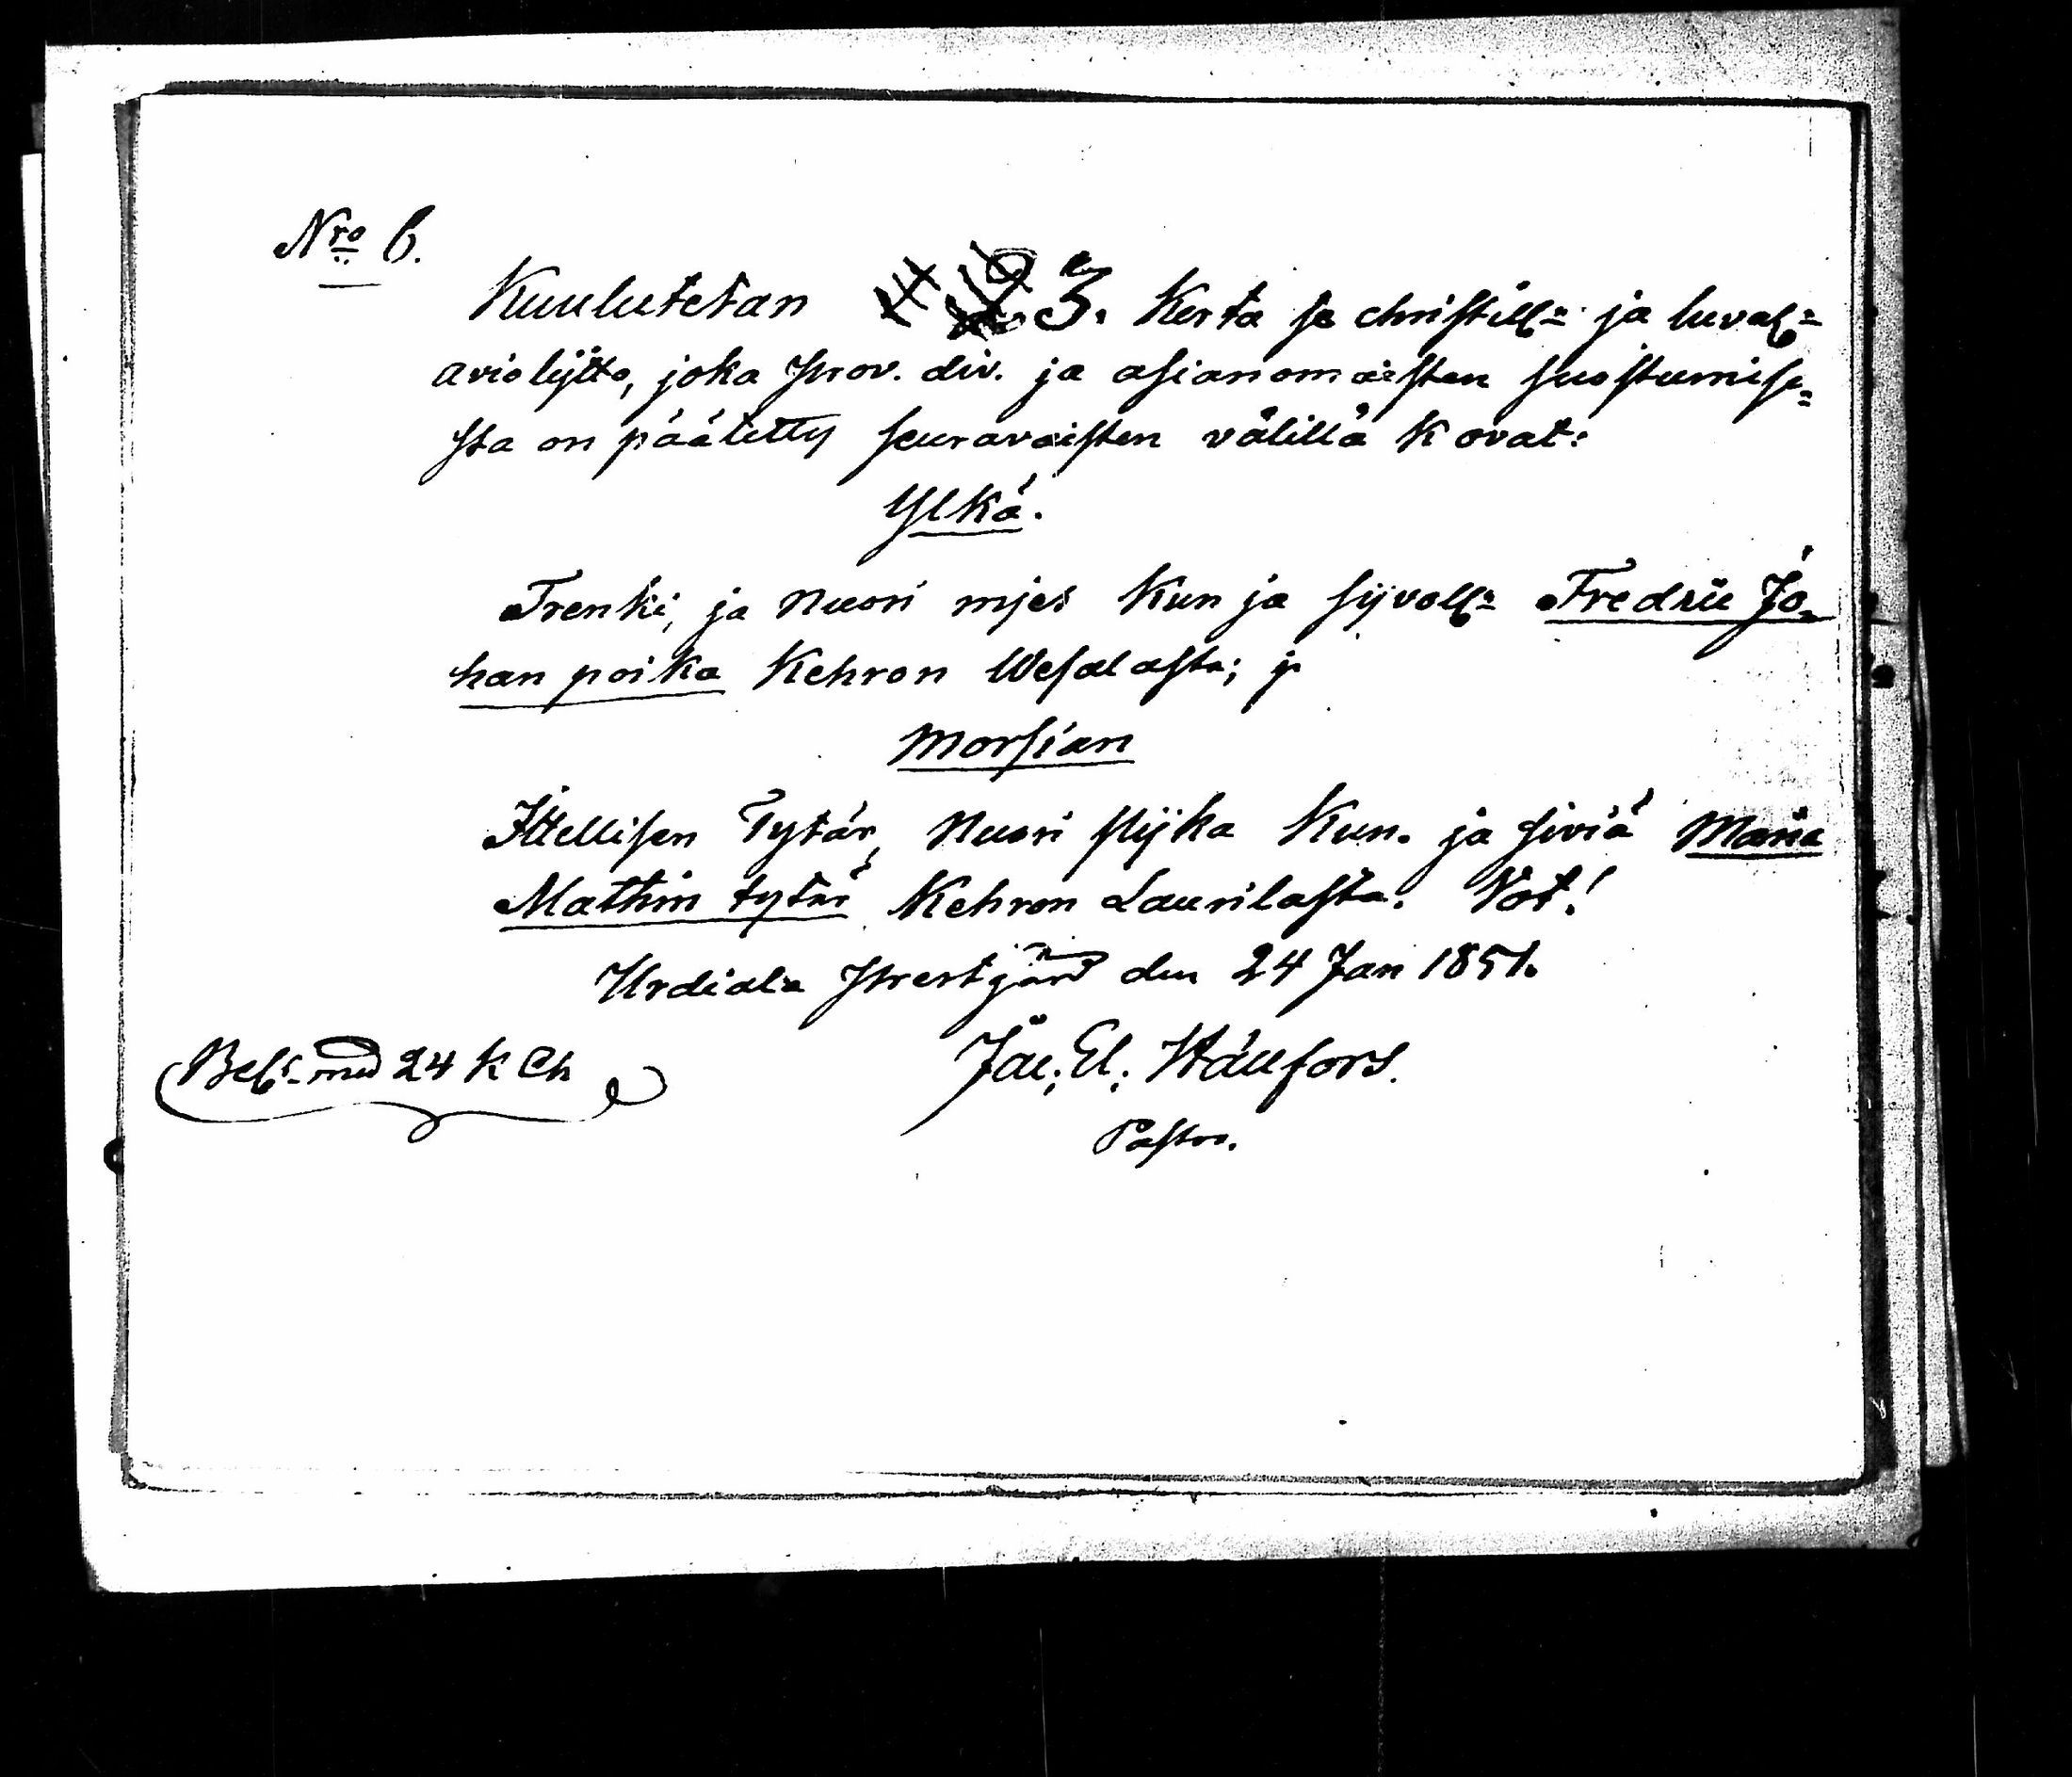 Nro 6.
Kuulutetan 3. Kerta se christill: ja luval:
aviolijtto, joka prov. div. ja asianomaisten suostumise=
sta on päätetty seuravaisten välillä k ovat:
Ylkä.
Trenki, ja Nuori mjes Kun ja sijvoll: Fredric Jo-
han poika Kehron Wesalasta; ja
Morsian
Ittellisen Tytär, Nuori pijka Kun. ja siviä Maria
Mathin tytär Kehron Laurilasta. Vot!
Urdiala Prestgård den 24 Jan 1851.
med 24 k
Pastor.